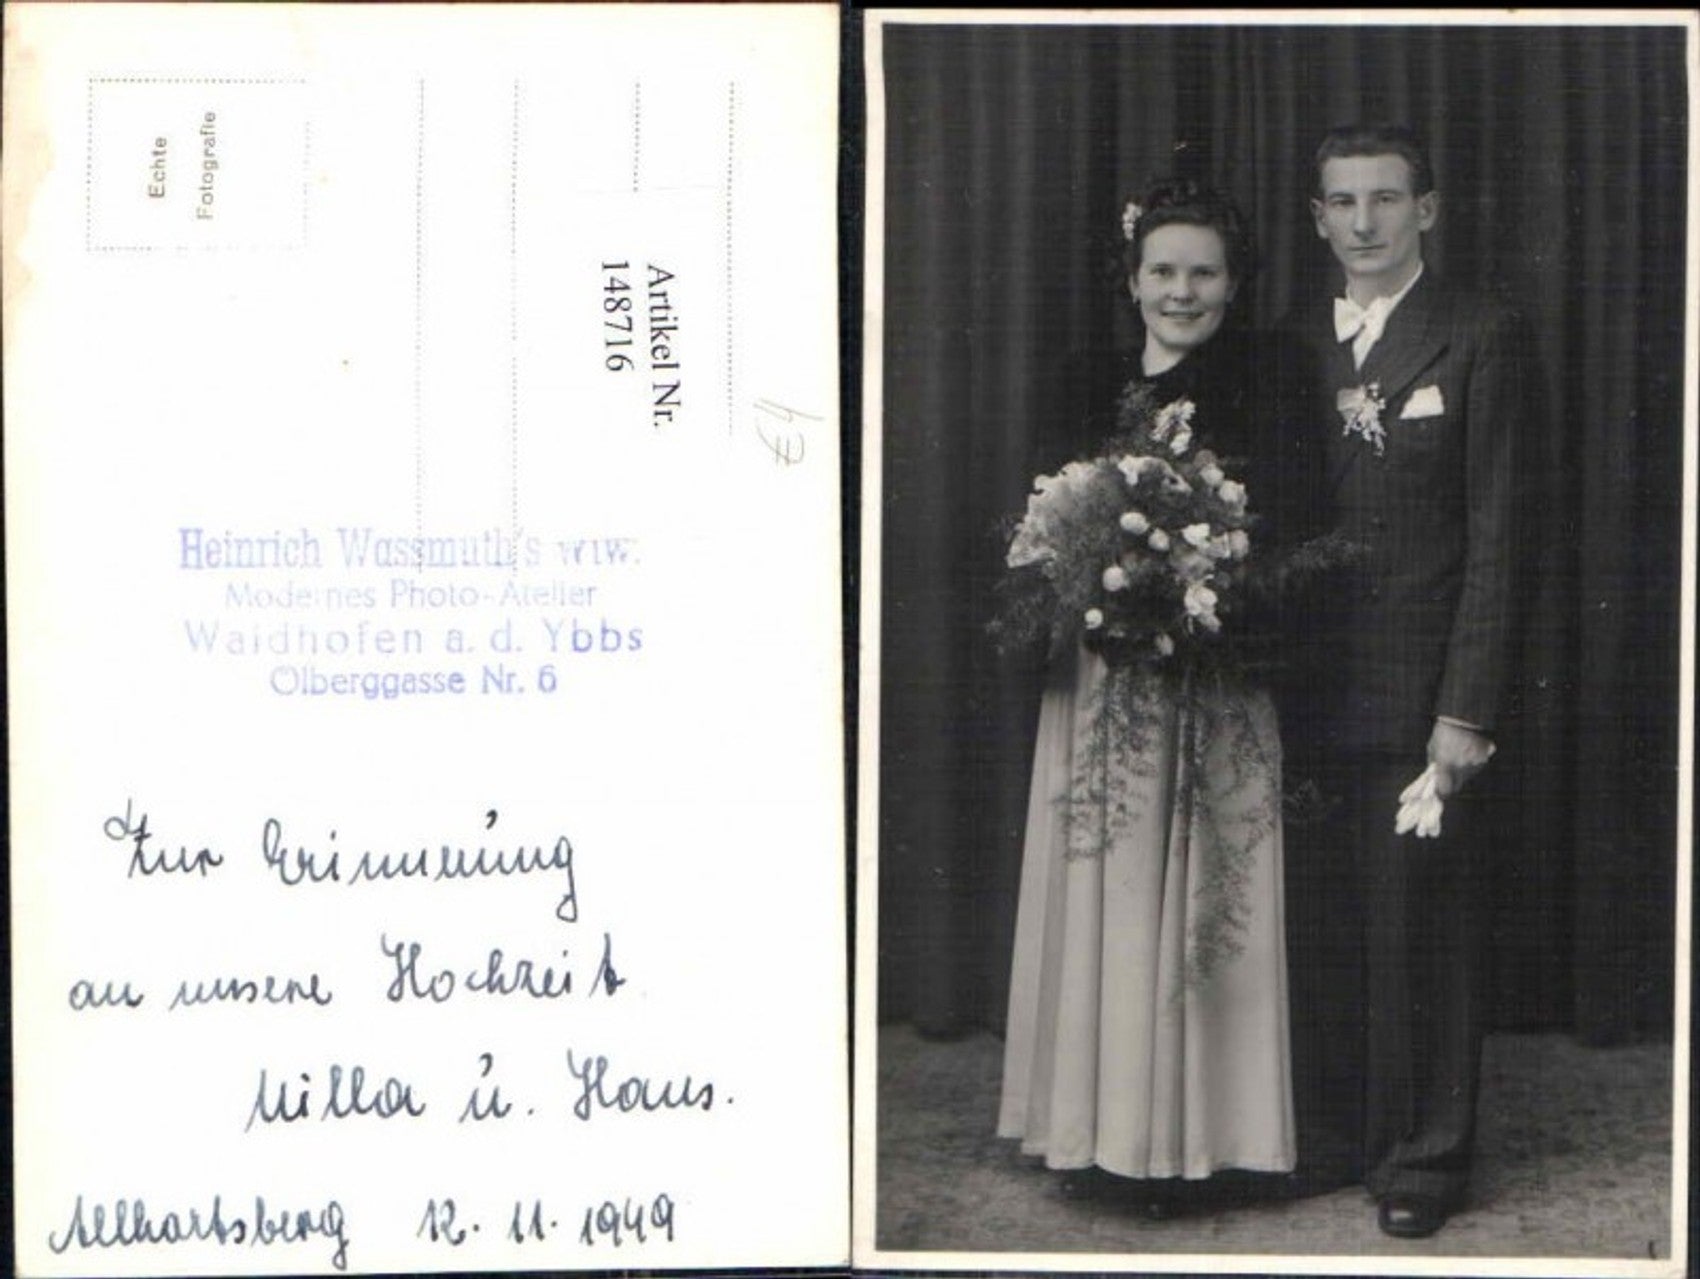 Echte
Fotografie
Artikel Nr.
148716
Heinrich Wassmuth's wtw.
Modernes Photo-Atelier
Waidhofen a. d. Ybbs
Ölberggasse Nr. 6
Zur Erinnerung
an unsere Hochzeit
Milla u. Hans.
Allhartsberg 12. 11. 1949